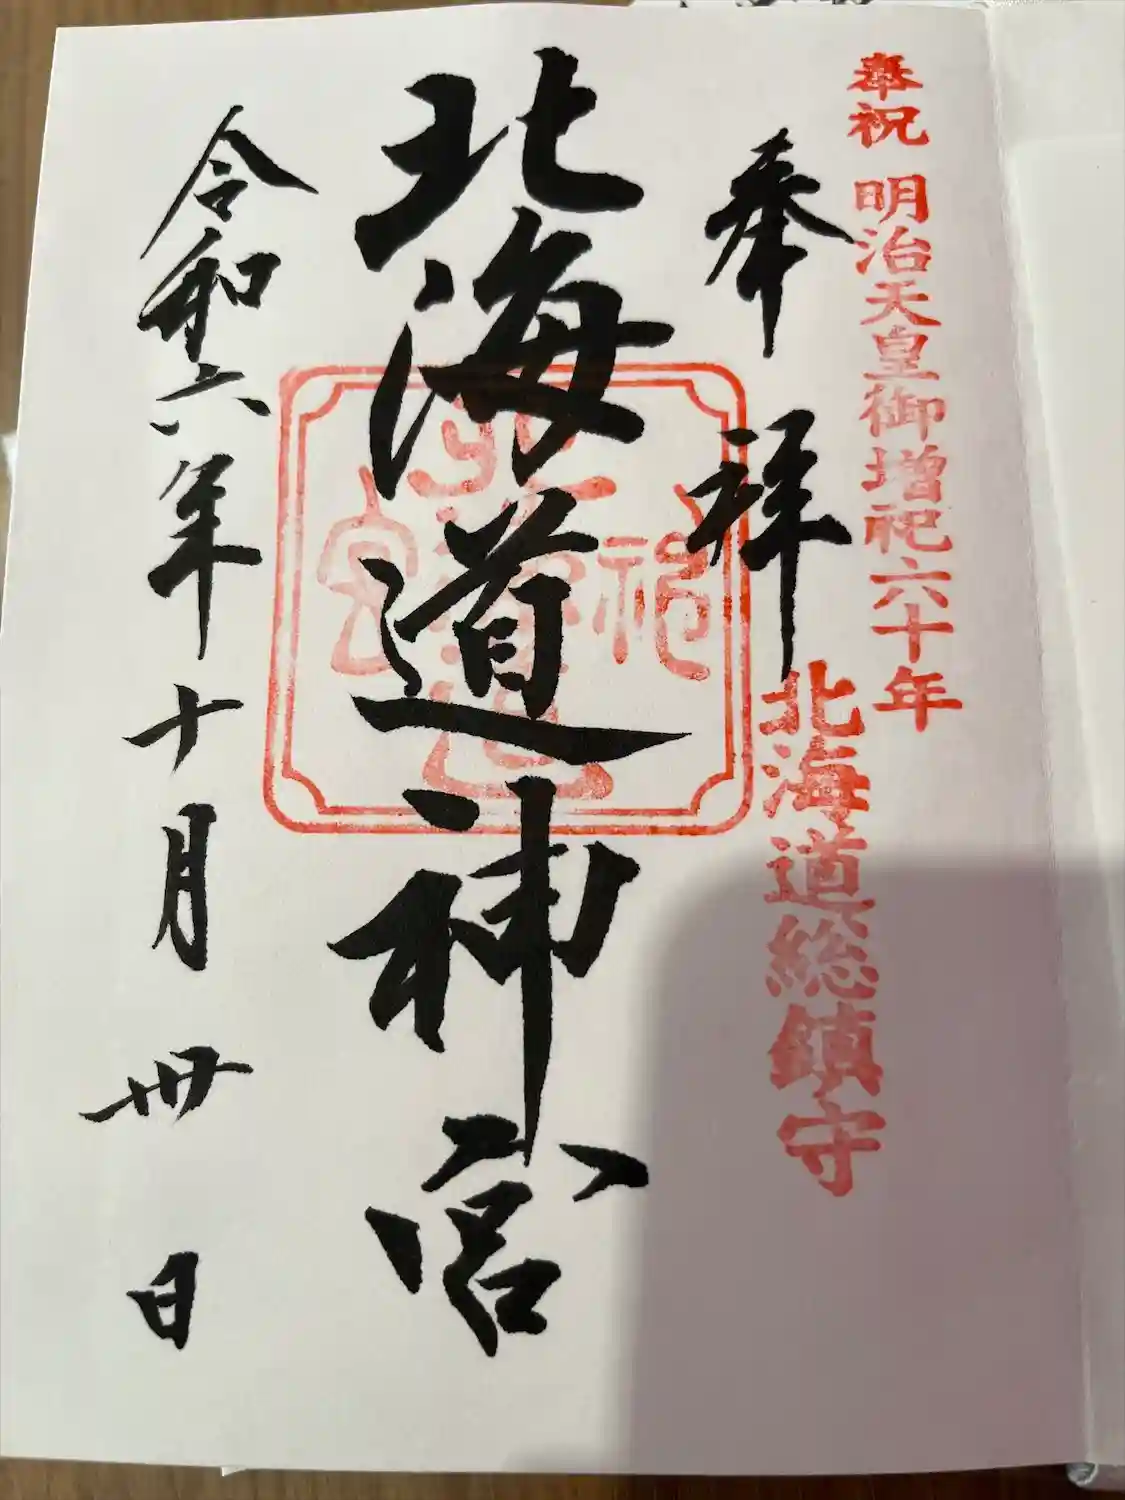 奉祝 明治天皇御増祀六十年
北海道総鎮守
奉拝
北海道神宮
令和六年十月卅日